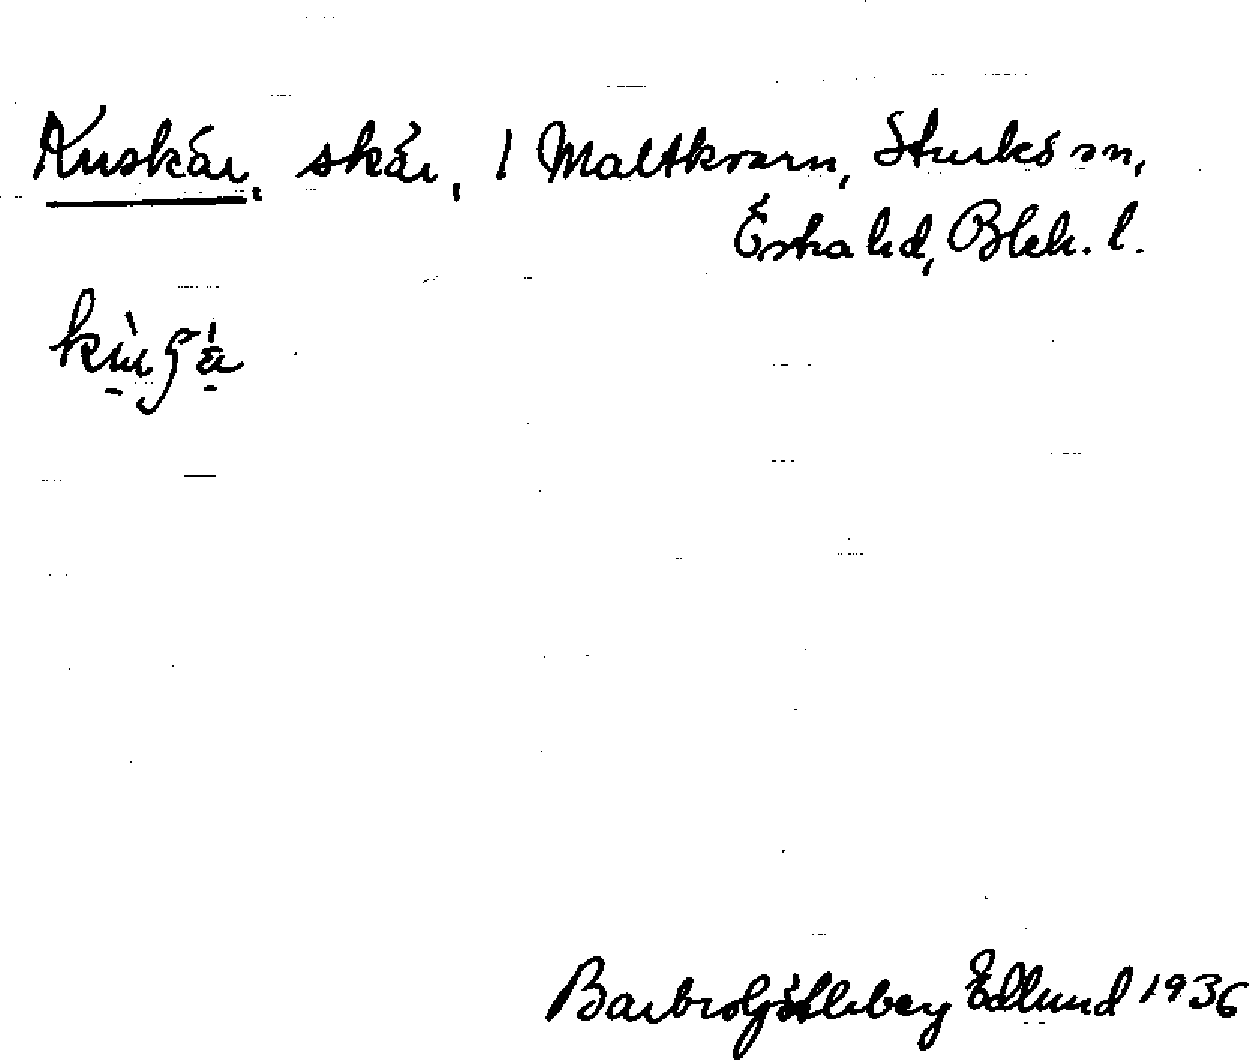 Kuskär, skär, 1 Maltkvarn, Sturkö sn,
Östra hd, Blek. l.
Barbro Götleberg Edlund 1936